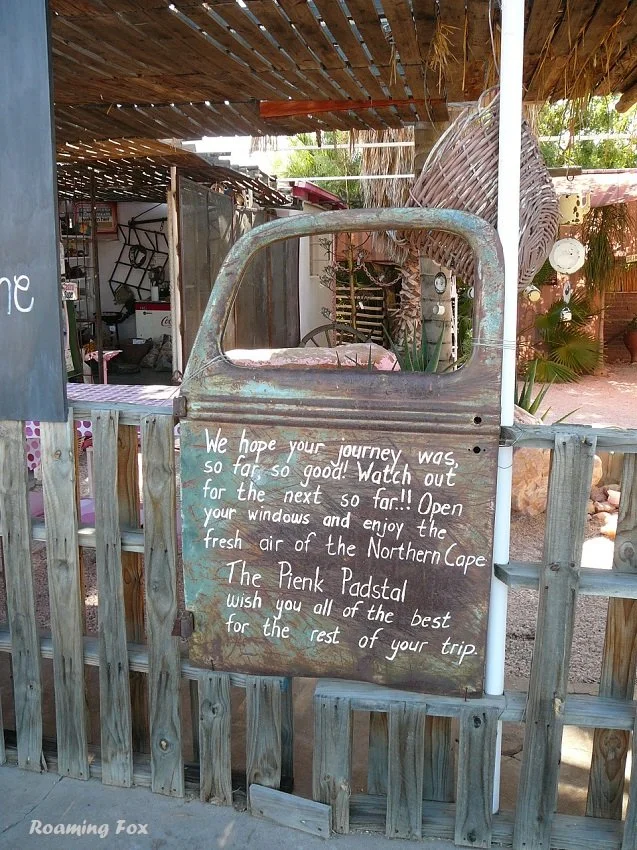 ne
We hope your journey was,
so far so good! Watch out
for the next so far!! Open
your windows and enjoy the
fresh air of the Northern Cape
The Pienk Padstal
wish you all of the best
for the rest of your trip.
Roaming Fox